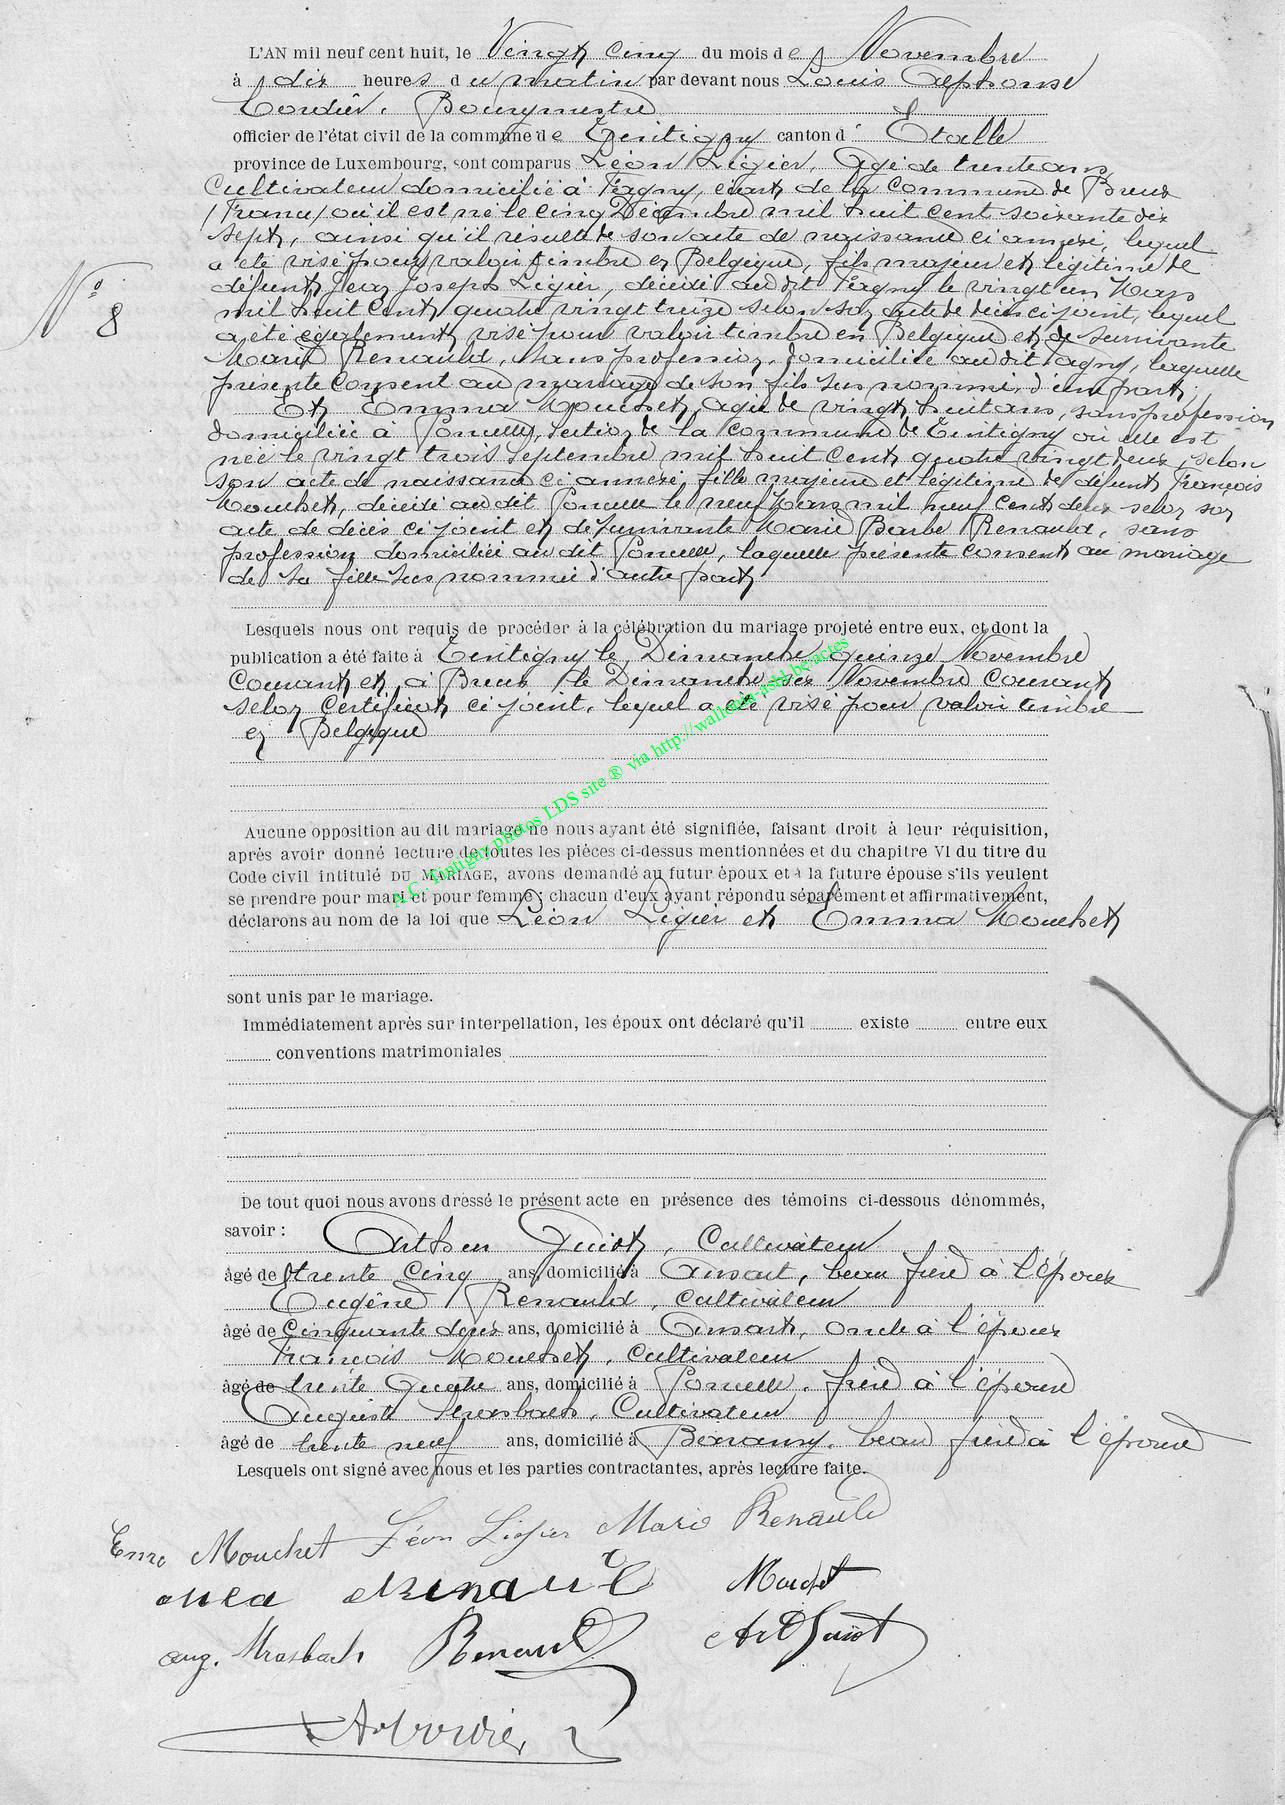 L'AN mil neuf cent huit, le Vingt cinq du mois de Novembre
à dix heures du matin par devant nous Louis Alphonse
Cordier, Bourgmestre
officier de l'état civil de la commune de Tintigny canton d' Etalle
province de Luxembourg, sont comparus Léon Ligier, âgé de trente ans
Cultivateur domicilié à Fagny, écart de la Commune de Breux
(France) où il est né le cinq Décembre mil huit cent soixante dix
sept, ainsi qu'il résulte de son acte de naissance ci annexé, lequel
a été visé pour valoir timbre en Belgique, fils majeur et légitime de
défunt Jean Joseph Ligier, décédé au dit Fagny le vingt un Mars
mil huit cent quatre vingt treize selon son acte de décès ci joint, lequel
a été également visé pour valoir timbre en Belgique et de survivante
Marie Renauld, sans profession, domiciliée au dit Fagny, laquelle
présente consent au mariage de son fils sus nommé, d'une part,
Et Emma Mouchet, agée de vingt huit ans, sans profession
domiciliée à Poncelle, section de la commune de Tintigny où elle est
née le vingt trois Septembre mil huit cent quatre vingt deux selon
son acte de naissance ci annexé, fille majeure et légitime de défunt François
Mouchet, décédé au dit Poncelle le neuf Mars mil neuf cent deux selon son
acte de décès ci joint et de survivante Marie Barbe Renauld, sans
profession domiciliée au dit Poncelle, laquelle présente consent au mariage
de sa fille sus nommée d'autre part
N° 8
Lesquels nous ont requis de procéder à la célébration du mariage projeté entre eux, et dont la
publication a été faite à Tintigny le Dimanche quinze Novembre
Courant et à Breux le Dimanche Novembre Courant
selon Certificat ci joint, lequel a été visé pour valoir timbre
en Belgique
Aucune opposition au dit mariage ne nous ayant été signifiée, faisant droit à leur réquisition,
après avoir donné lecture de toutes les pièces ci-dessus mentionnées et du chapitre VI du titre du
Code civil intitulé DU MARIAGE, avons demandé au futur époux et à la future épouse s'ils veulent
se prendre pour mari et pour femme ; chacun d'eux ayant répondu séparément et affirmativement,
déclarons au nom de la loi que Léon Ligier et Emma Mouchet
sont unis par le mariage.
Immédiatement après sur interpellation, les époux ont déclaré qu'il existe entre eux
conventions matrimoniales
De tout quoi nous avons dressé le présent acte en présence des témoins ci-dessous dénommés,
savoir : Arthur Guiot, Cultivateur
âgé de trente Cinq ans, domicilié à Ansart, beau frère à l'époux
Eugène Renauld, cultivateur
âgé de Cinquante deux ans, domicilié à Ansart, oncle à l'époux
François Mouchet, Cultivateur
âgé de trente Quatre ans, domicilié à Poncelle, frère à l'épouse
Auguste Strasbach, Cultivateur
âgé de trente neuf ans, domicilié à beau frère à l'épouse
Lesquels ont signé avec nous et les parties contractantes, après lecture faite.
Emma Mouchet Léon Ligier Marie Renauld
Mouchet
aug. Strasbach Renauld Art Guiot
A. Cordier
A.C. Tintigny photos LDS site ® via http://wallonia-asbl.be/actes